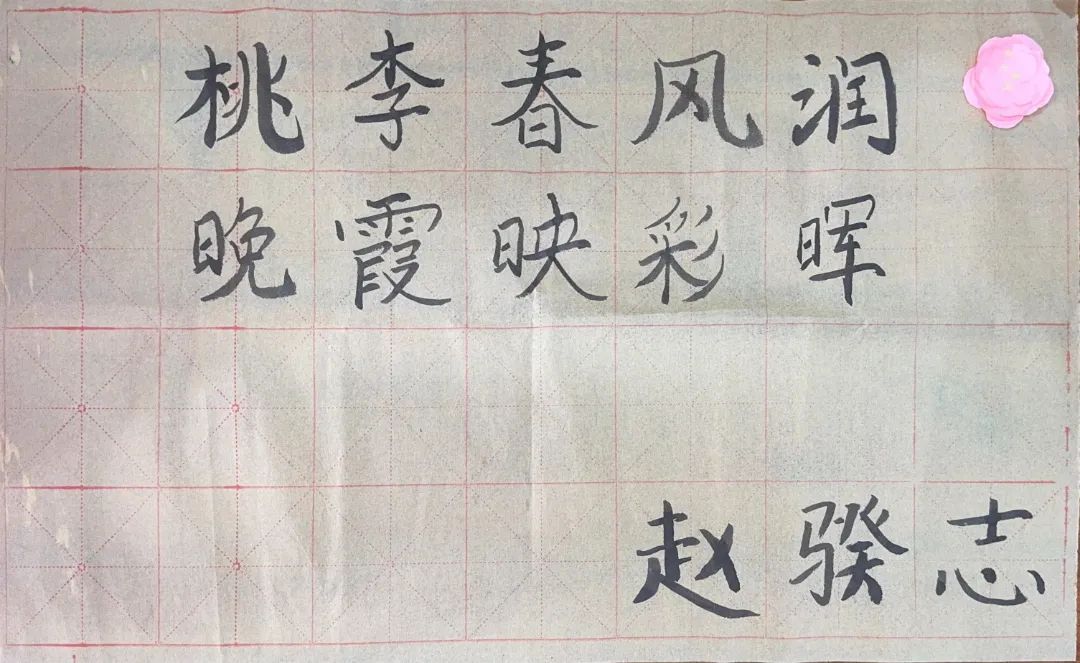 桃李春风润
晚霞映彩晖
赵骙志